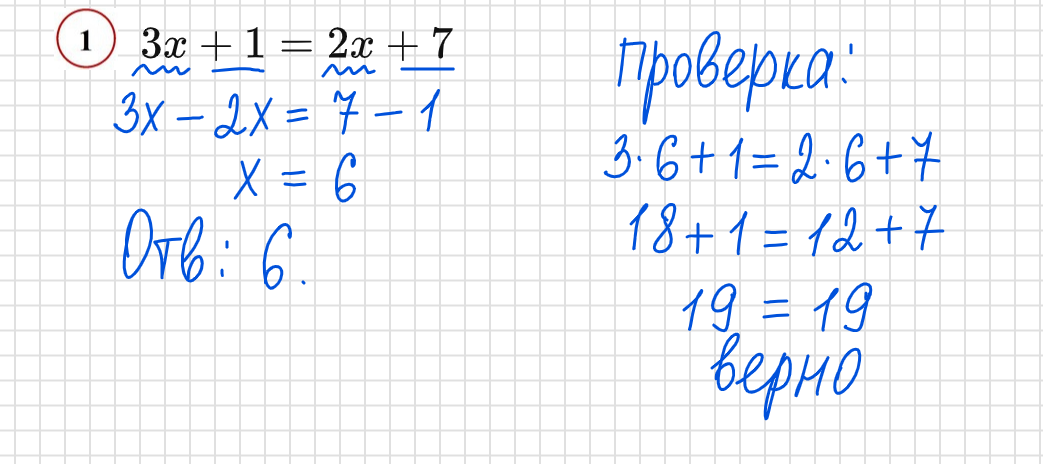 1 3x + 1 = 2x + 7
3x − 2x = 7 − 1
x = 6
Отв: 6.
Проверка:
3·6+1=2·6+7
18+1=12+7
19 = 19
верно